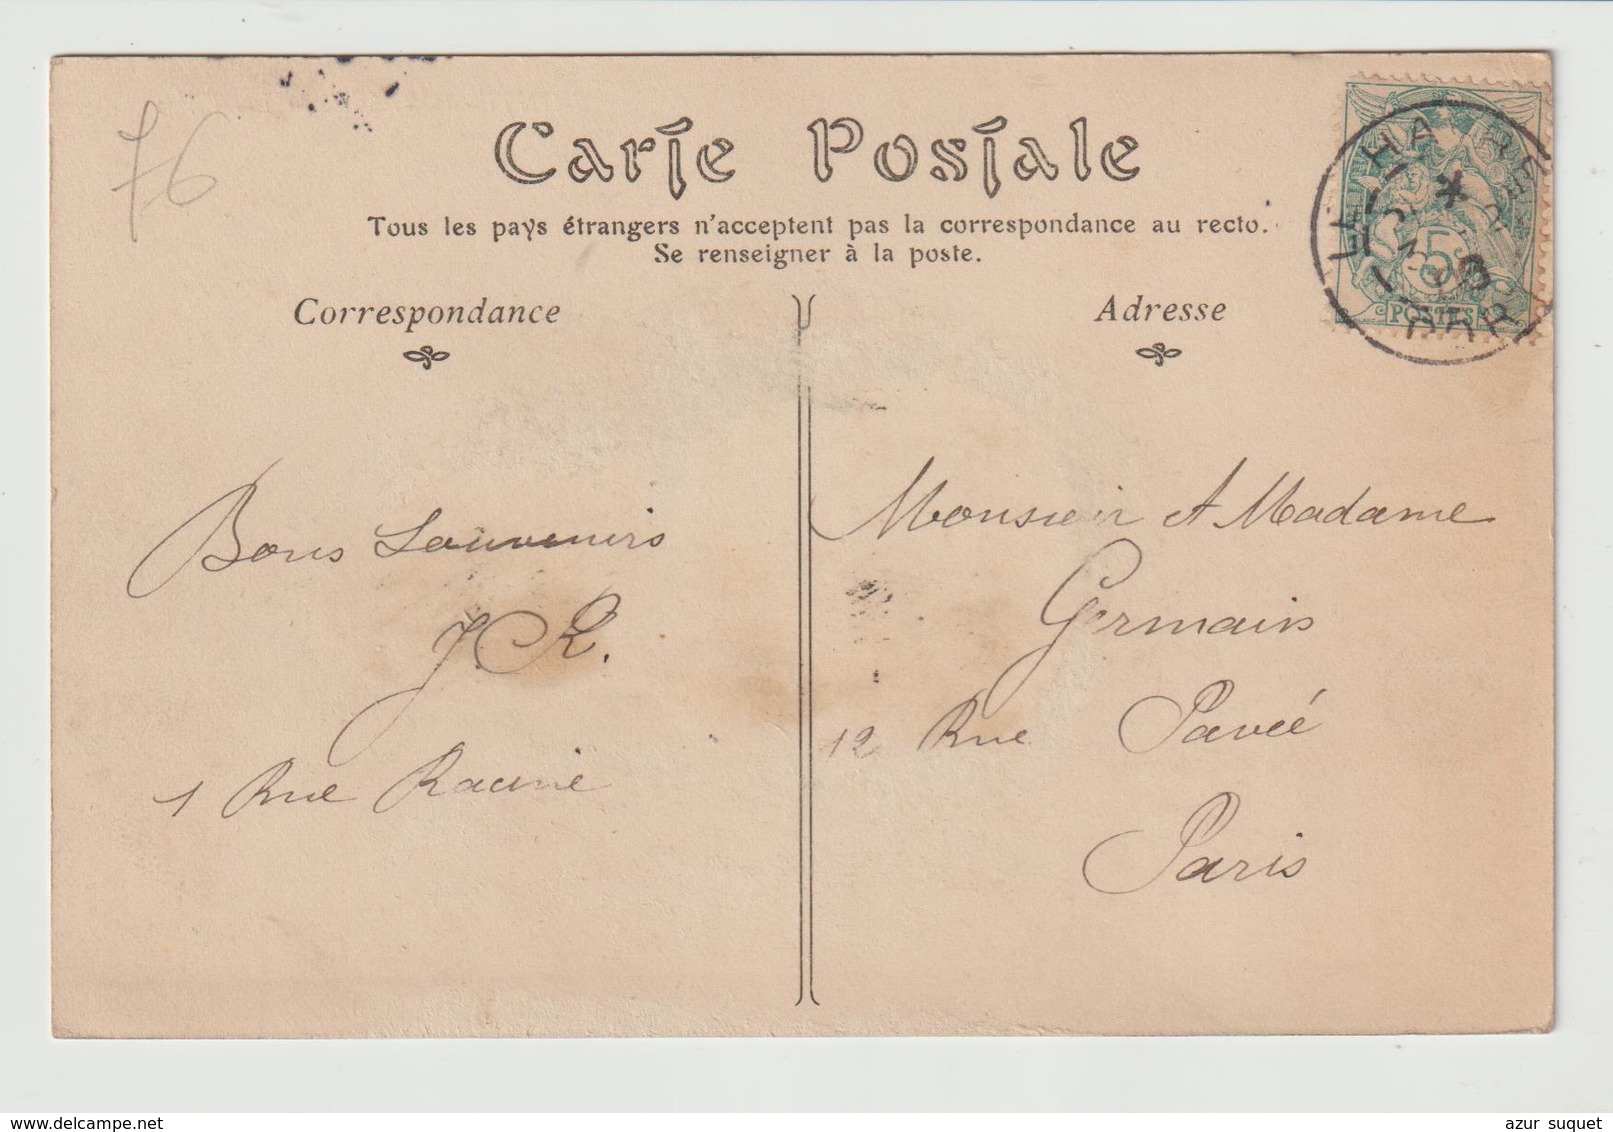 76
Carte Postale
Tous les pays étrangers n'acceptent pas la correspondance au recto.
Se renseigner à la poste.
Correspondance
Adresse
5
POSTES
LE HAVRE
Bons Souvenirs
J. R.
1 Rue Racine
Monsieur et Madame
Germain
12 Rue Pavée
Paris
delcampe.net
azur suquet